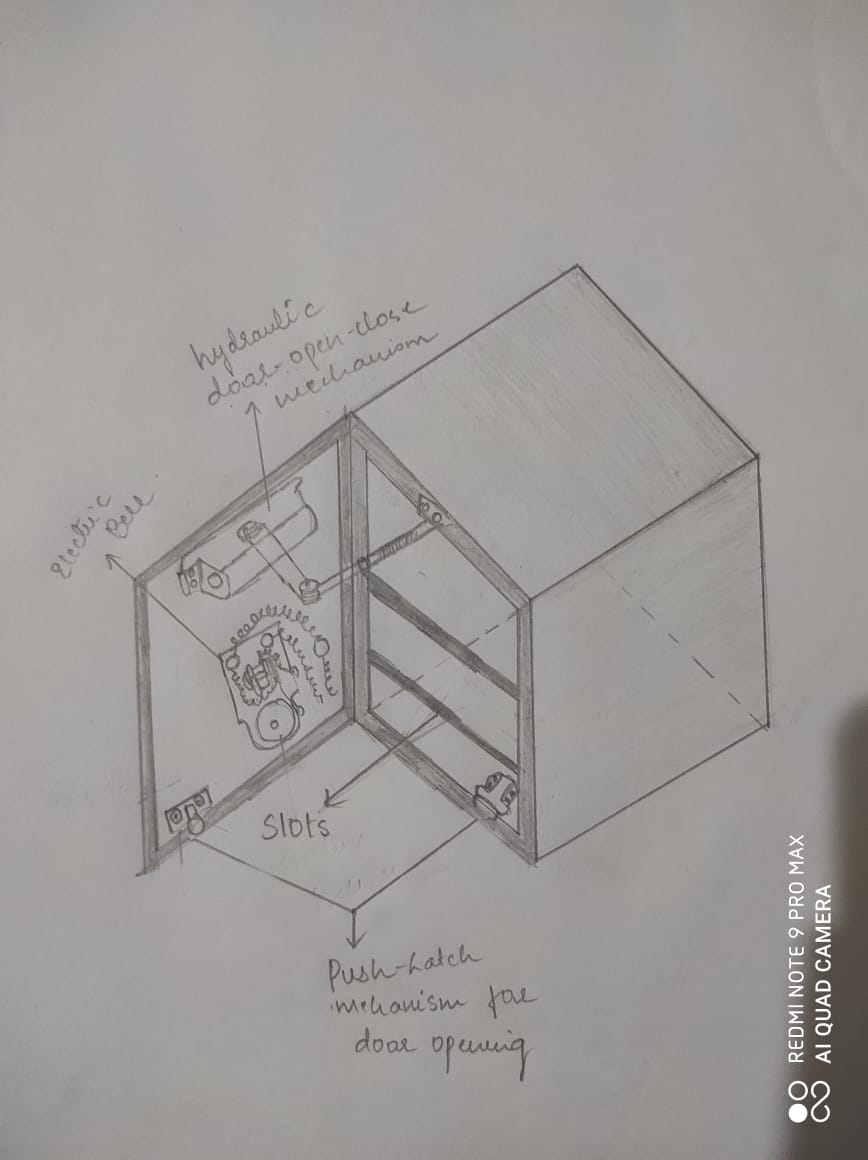 hydraulic
door-open-close
mechanism
Electric
Bell
Slots
Push-Latch
mechanism for
door opening
REDMI NOTE 9 PRO MAX
AI QUAD CAMERA